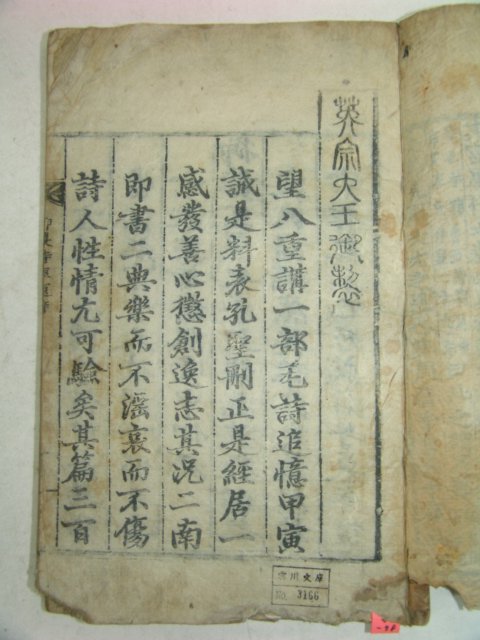 英宗大王御製
望八重講一部毛詩追憶甲寅
誠是料表孔聖刪正是經居一
感發善心懲創逸志其況二南
即書二典樂而不滛哀而不傷
詩人性情尤可驗矣其篇三百
文庫
No. 3166